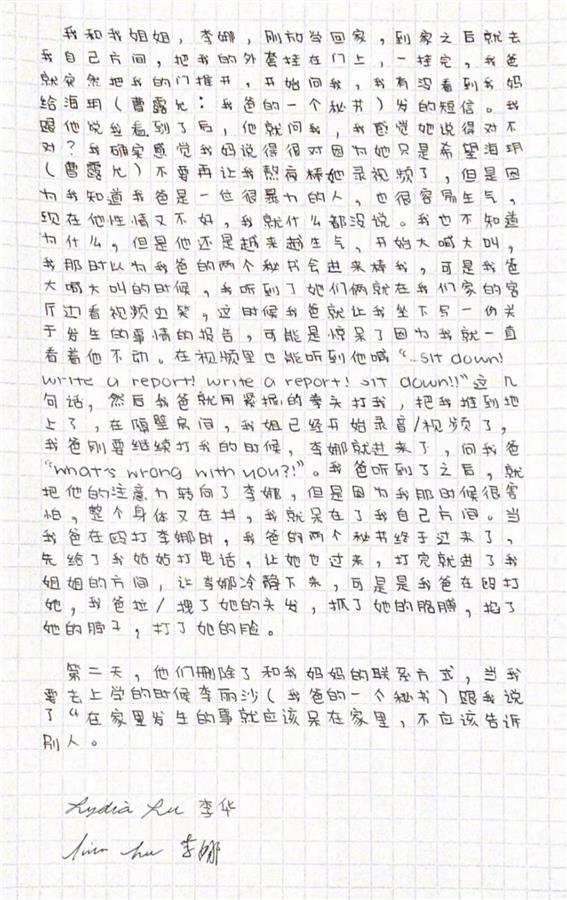 我和我姐姐，李娜，刚放当回家，到家之后就去
我自己方间，把我的外套挂在门上，一挂完，我爸
就突然把我的门推开，开始问我，我有没看到我妈
给海玥（曹露允：我爸的一个秘书）发的短信。我
跟他说我看到了后，他就问我，我感觉她说得对不
对？我确实感觉我妈说得很对因为她只是希望海玥
（曹露允）不要再让我熬夜棒她录视频了，但是因
为我知道我爸是一位很暴力的人，也很容易生气，
现在他性情又不好，我就什么都没说。我也不知道
为什么，但是他还是越来越生气，开始大喊大叫，
我那时以为我爸的两个秘书会进来棒我，可是我爸
大喊大叫的时候，我听到了她们俩就在我们家的客
厅边看视频边笑，这时候我爸就让我坐下写一份关
于发生的事情的报告，可能是惊呆了因为我就一直
看着他不动。在视频里也能听到他喊“...sit down!
write a report! write a report! sit down!!”这几
句话，然后我爸就用紧握的拳头打我，把我推到地
上了，在隔壁房间，我姐已经开始录音/视频了，
我爸刚要继续打我的时候，李娜就进来了，问我爸
“what's wrong with you?!”。我爸听到了之后，就
把他的注意力转向了李娜，但是因为我那时候很害
怕，整个身体又在抖，我就呆在了我自己方间。当
我爸在殴打李娜时，我爸的两个秘书终于过来了，
先给了我姑姑打电话，让她也过来，打完就进了我
姐姐的方间，让李娜冷静下来，可是是我爸在殴打
她，我爸拉/拽了她的头发，抓了她的胳膊，掐了
她的脖子，打了她的脸。
第二天，他们删除了和我妈妈的联系方式，当我
要去上学的时候李丽沙（我爸的一个秘书）跟我说
了“在家里发生的事就应该呆在家里，不应该告诉
别人。
Lydia Lu 李华
李娜